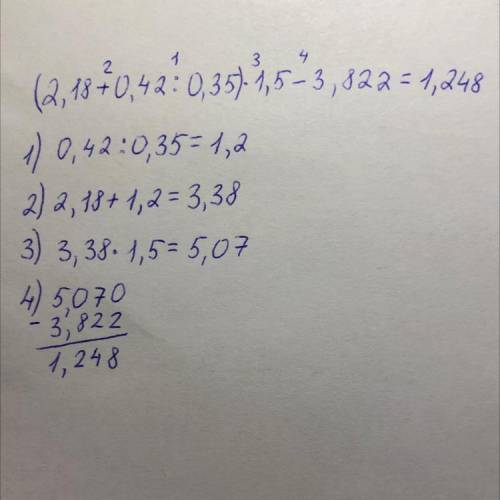 2 1 3 4
(2,18+0,42:0,35)·1,5-3,822=1,248
1) 0,42:0,35=1,2
2) 2,18+1,2=3,38
3) 3,38·1,5=5,07
4) 5,070
- 3,822
1,248